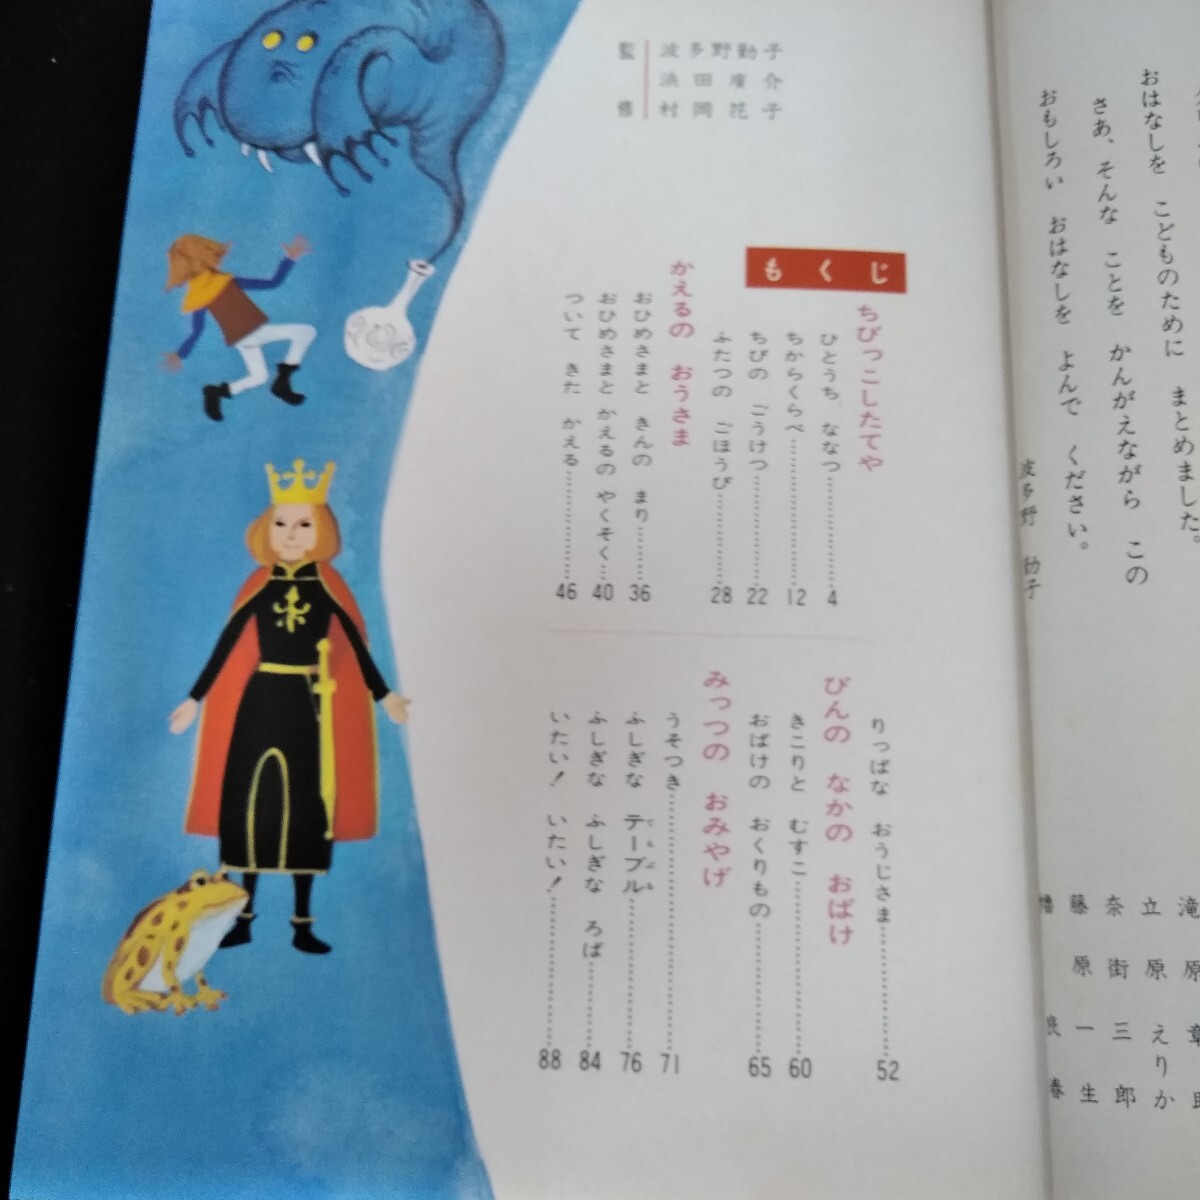 おはなしを こどものために まとめました。
さあ、そんな ことを かんがえながら この
おもしろい おはなしを よんで ください。
波多野 勤子
立原えりか
奈街三郎
藤原一生
監修
波多野勤子
浜田廣介
村岡花子
もくじ
ちびっこしたてや
ひとうち ななつ……4
ちからくらべ……12
ちびの ごうけつ……22
ふたつの ごほうび……28
かえるの おうさま
おひめさまと きんの まり……36
おひめさまと かえるの やくそく……40
ついて きた かえる……46
りっぱな おうじさま……52
びんの なかの おばけ
きこりと むすこ……60
おばけの おくりもの……65
みっつの おみやげ
うそつき……71
ふしぎな テーブル……76
ふしぎな ふしぎな ろば……84
いたい! いたい!……88